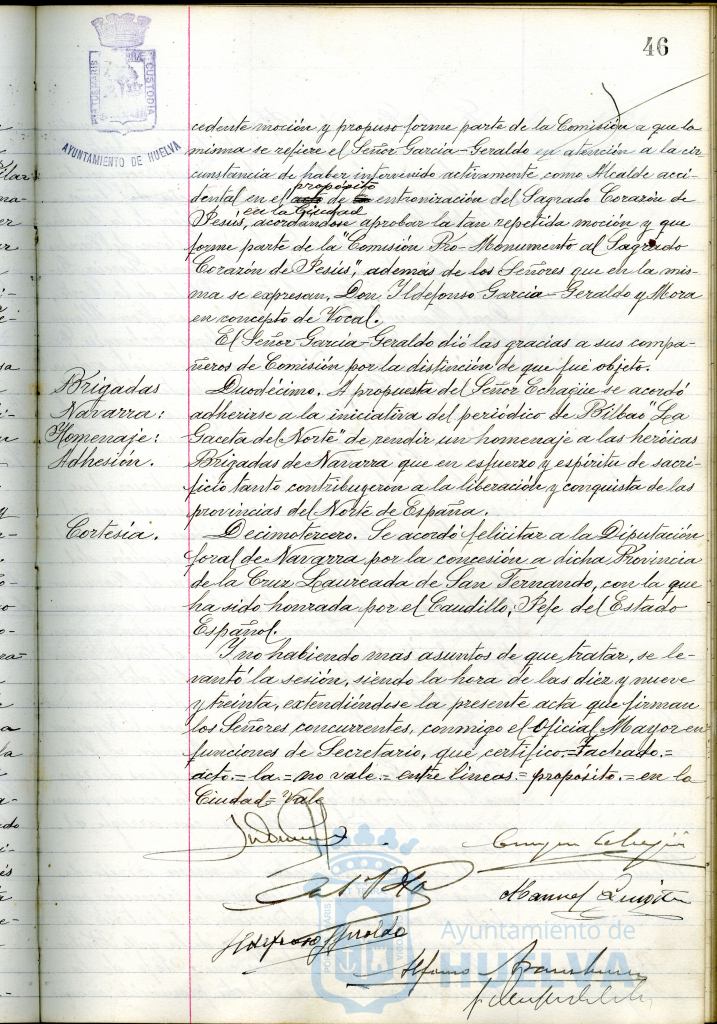 46
AYUNTAMIENTO DE HUELVA
cedente moción y propuso forme parte de la Comisión a que la
misma se refiere el Señor García-Geraldo en atención a la cir
cunstancia de haber intervenido activamente como Alcalde acci
dental en el acto propósito de la entronización del Sagrado Corazón de
Jesús, en la Ciudad, acordándose aprobar la tan repetida moción y que
forme parte de la "Comisión Pro-Monumento al Sagrado
Corazón de Jesús", además de los Señores que en la mis-
ma se expresan, Don Ildefonso García-Geraldo y Mora
en concepto de Vocal.
El Señor García-Geraldo dió las gracias a sus compa-
ñeros de Comisión por la distinción de que fué objeto.
Brigadas
Navarra:
Homenaje:
Adhesión.
Duodécimo. A propuesta del Señor Echagüe se acordó
adherirse a la iniciativa del periódico de Bilbao "La
Gaceta del Norte" de rendir un homenaje a las heróicas
Brigadas de Navarra que en esfuerzo y espíritu de sacri-
ficio tanto contribuyeron a la liberación y conquista de las
provincias del Norte de España.
Cortesía.
Decimotercero. Se acordó felicitar a la Diputación
foral de Navarra por la concesión a dicha Provincia
de la Cruz Laureada de San Fernando, con la que
ha sido honrada por el Caudillo, Jefe del Estado
Español.
Y no habiendo mas asuntos de que tratar, se le-
vantó la sesión, siendo la hora de las diez y nueve
y treinta, extendiéndose la presente acta que firman
los Señores concurrentes, conmigo el Oficial Mayor en
funciones de Secretario, que certifico.=Tachado.=
acto.=la.=no vale.=entre lineas.=propósito.=en la
Ciudad=Vale
Manuel
Ildefonso Geraldo
Alfonso
Ayuntamiento de
HUELVA